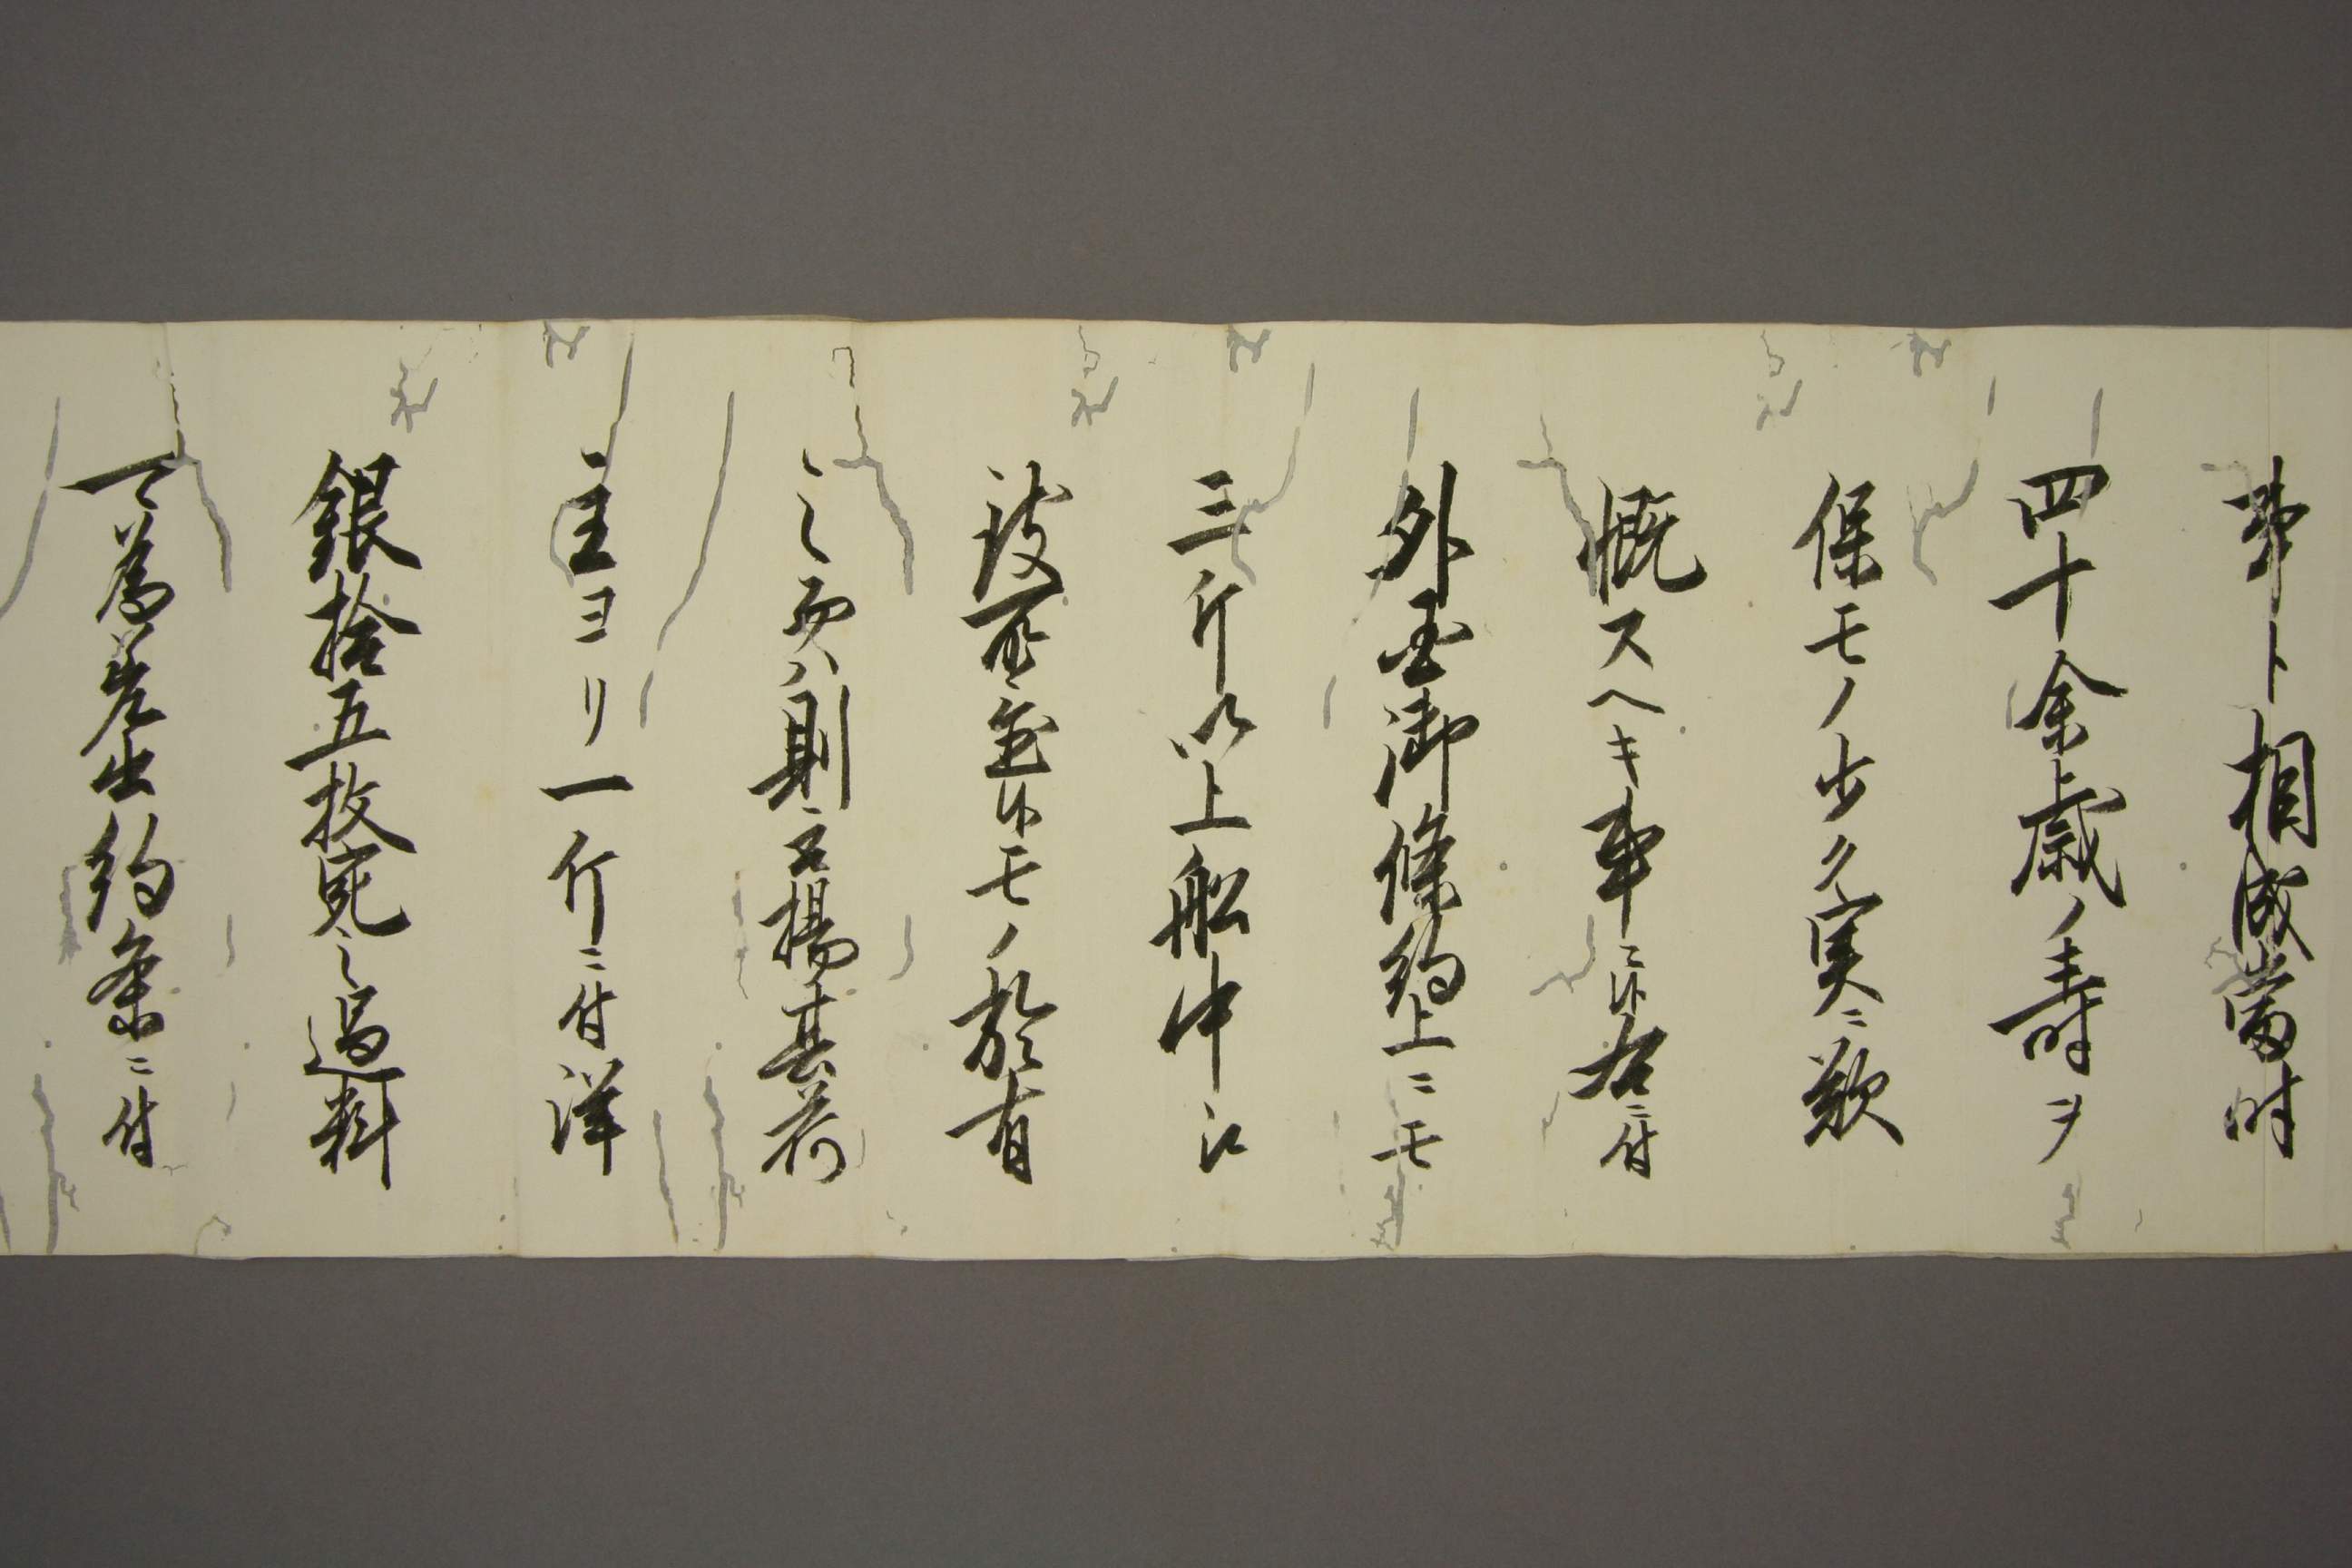 弊ト相成當時
四十余歳ノ壽ヲ
保モノ少ク実ニ歎
慨スヘキ事ニ候右ニ付
外国御條約上ニモ
三斤以上船中江
候モノ於有
之 則 揚其荷
主ヨリ一斤ニ付洋
銀拾五枚宛之過料
可為差出約条ニ付